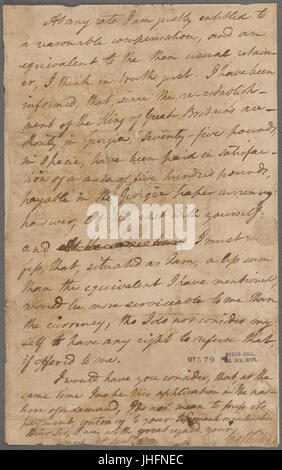 At any rate I am justly entitled to
a reasonable compensation, and an
equivalent to the then usual retain-
er, I think in truth just. I have been
informed, that, since the re-establish-
ment of the King of Great Britain's au-
thority in Georgia seventy-five pounds,
in specie, have been paid in satisfac-
tion of a debt of five hundred pounds,
payable in the Georgia paper currency:
however, rest with yourself:
and I must con-
fess, that, situated as I am, a less sum
than the equivalent I have mentioned,
would be more serviceable to me than
the currency, tho I do not consider my
self to have any right to refuse that
if offered to me.
I would have you consider, that, at the
same time I make this application in the na-
ture of a demand, I do not mean to press its
payment contrary to your
I am with great regard, your
MY579
MYERS COLL.
alamy
Image ID: J3FNEC
www.alamy.com